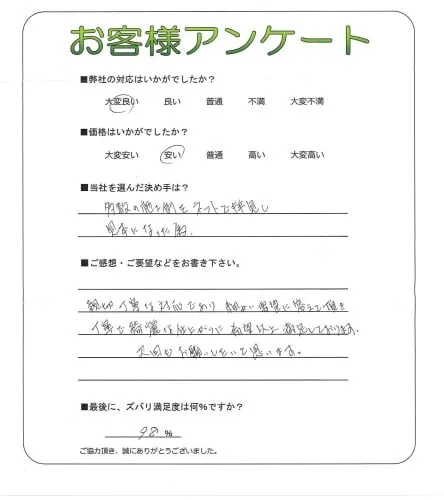 お客様アンケート
■弊社の対応はいかがでしたか?
大変良い 良い 普通 不満 大変不満
■価格はいかがでしたか?
大変安い 安い 普通 高い 大変高い
■当社を選んだ決め手は?
多数の施工例をネットで拝見し
見本になった為。
■ご感想・ご要望などをお書き下さい。
親切丁寧な対応であり 細かい要望に答えて頂き
丁寧で綺麗な仕上がりに 希望以上 満足しております。
次回もお願いしたいと思います。
■最後に、ズバリ満足度は何%ですか?
98 %
ご協力頂き、誠にありがとうございました。